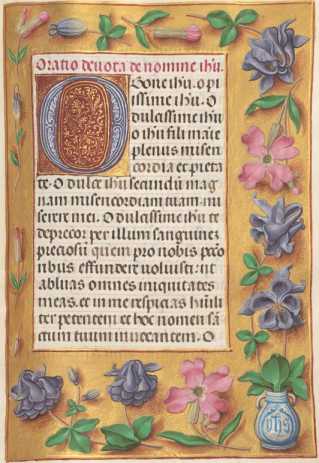 Oratio deuota de nomine ihū.
O Bone ihū. o pi
issime ihū. O
dulcissime ihū
o ihū fili marie
plenus miseri
cordia et pieta
te. O dulce ihū secundū mag
nam misericordiam tuam. mi
serere mei. O dulcissime ihū te
deprecor per illum sanguinez
preciosū quem pro nobis pecco
ribus effundere voluisti: vt
abluas omnes iniquitates
meas. et in me respicias humili
ter petentem et hoc nomen sā
ctum tuum inuocantem. O
yhs